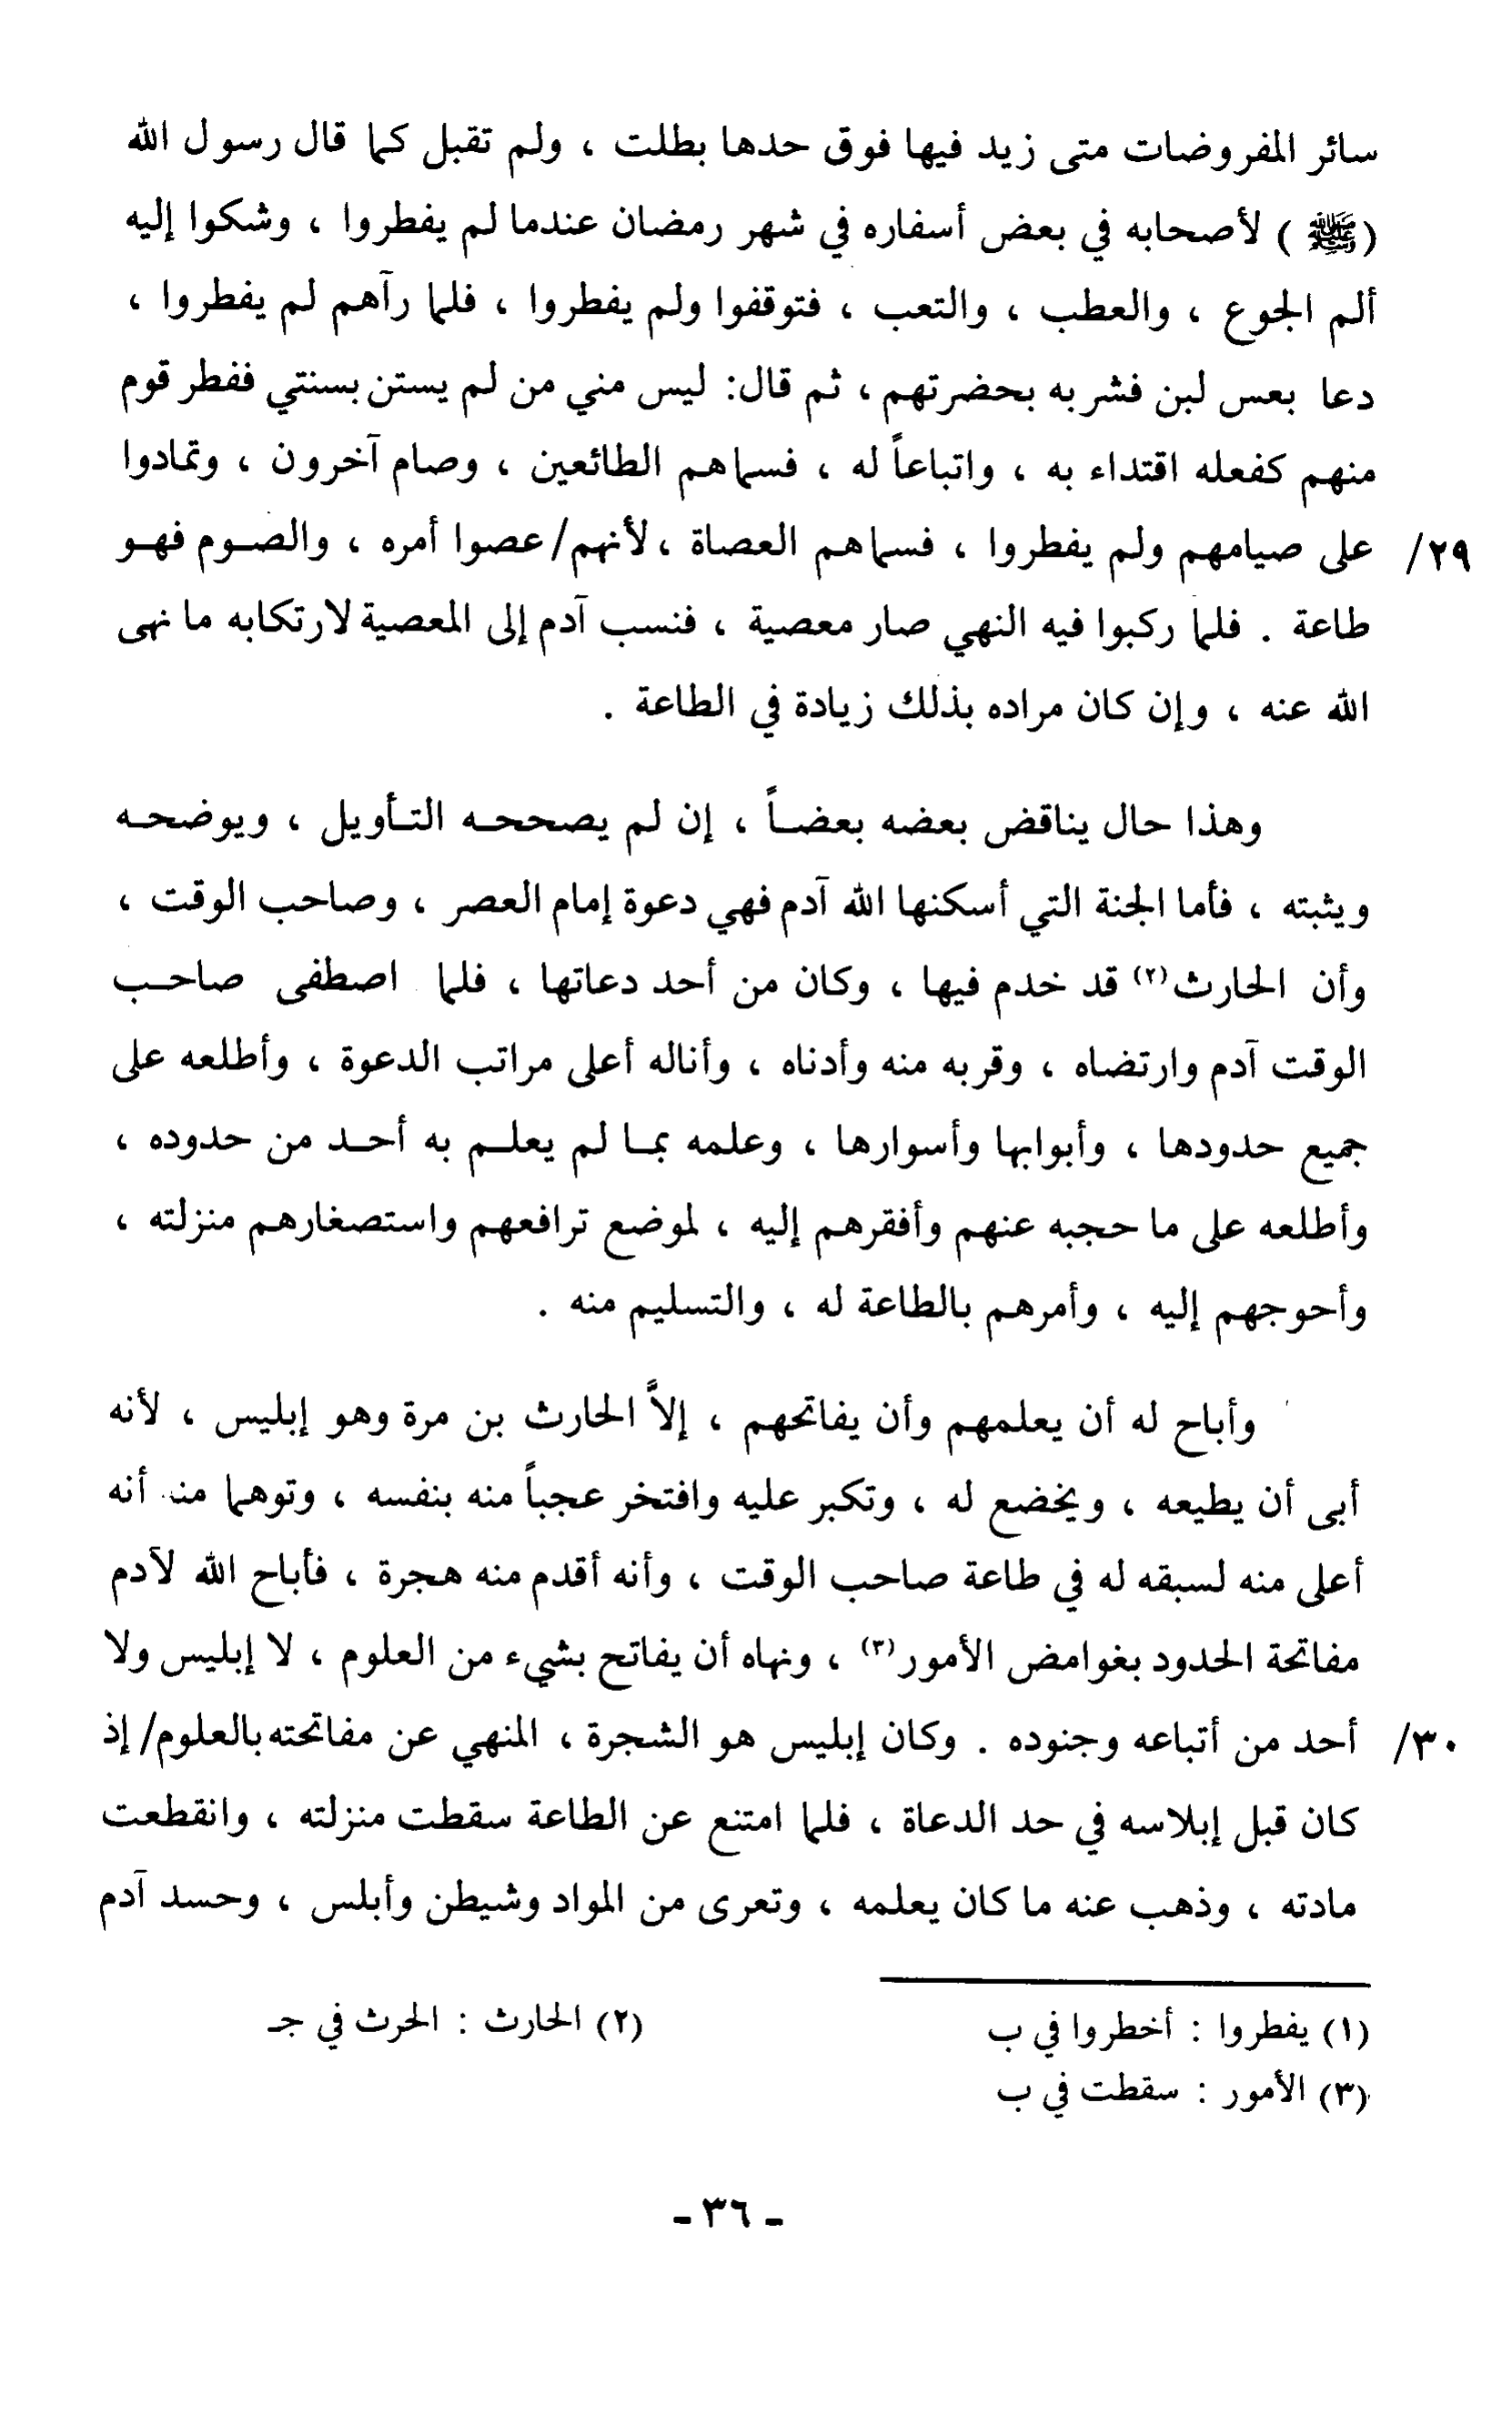 سائر المفروضات متى زيد فيها فوق حدها بطلت ، ولم تقبل كما قال رسول الله
(ﷺ) لأصحابه في بعض أسفاره في شهر رمضان عندما لم يفطروا ، وشكوا إليه
ألم الجوع ، والعطب ، والتعب ، فتوقفوا ولم يفطروا ، فلما رآهم لم يفطروا ،
دعا بعس لبن فشربه بحضرتهم ، ثم قال: ليس مني من لم يستن بسنتي ففطر قوم
منهم كفعله اقتداء به ، واتباعاً له ، فسماهم الطائعين ، وصام آخرون ، وتمادوا
٢٩/ على صيامهم ولم يفطروا ، فسماهم العصاة ، لأنهم/ عصوا أمره ، والصوم فهو
طاعة . فلما ركبوا فيه النهي صار معصية ، فنسب آدم إلى المعصية لارتكابه ما نهى
الله عنه ، وإن كان مراده بذلك زيادة في الطاعة .
وهذا حال يناقض بعضه بعضاً ، إن لم يصححه التأويل ، ويوضحه
ويثبته ، فأما الجنة التي أسكنها الله آدم فهي دعوة إمام العصر ، وصاحب الوقت ،
وأن الحارث(٢) قد خدم فيها ، وكان من أحد دعاتها ، فلما اصطفى صاحب
الوقت آدم وارتضاه ، وقربه منه وأدناه ، وأناله أعلى مراتب الدعوة ، وأطلعه على
جميع حدودها ، وأبوابها وأسوارها ، وعلمه بما لم يعلم به أحد من حدوده ،
وأطلعه على ما حجبه عنهم وأفقرهم إليه ، لموضع ترافعهم واستصغارهم منزلته ،
وأحوجهم إليه ، وأمرهم بالطاعة له ، والتسليم منه .
وأباح له أن يعلمهم وأن يفاتحهم ، إلاَّ الحارث بن مرة وهو إبليس ، لأنه
أبى أن يطيعه ، ويخضع له ، وتكبر عليه وافتخر عجباً منه بنفسه ، وتوهما منه أنه
أعلى منه لسبقه له في طاعة صاحب الوقت ، وأنه أقدم منه هجرة ، فأباح الله لآدم
مفاتحة الحدود بغوامض الأمور(٣) ، ونهاه أن يفاتح بشيء من العلوم ، لا إبليس ولا
٣٠/ أحد من أتباعه وجنوده . وكان إبليس هو الشجرة ، المنهي عن مفاتحته بالعلوم/ إذ
كان قبل إبلاسه في حد الدعاة ، فلما امتنع عن الطاعة سقطت منزلته ، وانقطعت
مادته ، وذهب عنه ما كان يعلمه ، وتعرى من المواد وشيطن وأبلس ، وحسد آدم
(١) يفطروا : أخطروا في ب
(٢) الحارث : الحرث في جـ
(٣) الأمور : سقطت في ب
- ٣٦ -